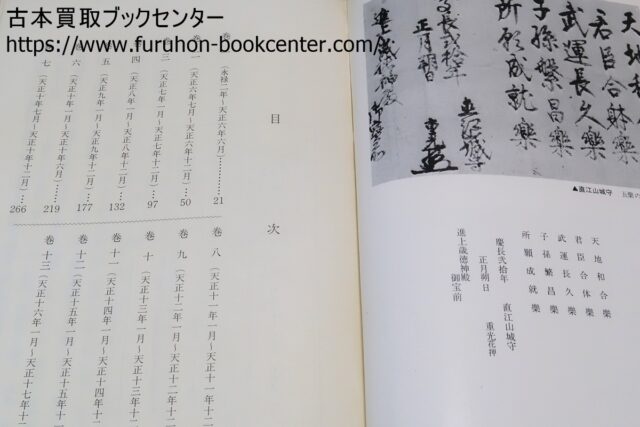 古本買取ブックセンター
https://www.furuhon-bookcenter.com/
天地和
君臣合躰樂
武運長久樂
子孫繁昌樂
所願成就樂
▲直江山城守
天地和合樂
君臣合体樂
武運長久樂
子孫繁昌樂
所願成就樂
慶長弐拾年
正月朔日
直江山城守
重光花押
進上歳徳神殿
御宝前
目次
巻一(永禄二年〜天正六年六月)……21
巻二(天正六年七月〜天正六年十二月)……50
巻三(天正七年一月〜天正七年十二月)……97
巻四(天正八年一月〜天正八年十二月)……132
巻五(天正九年一月〜天正九年十二月)……177
巻六(天正十年一月〜天正十年六月)……219
巻七(天正十年七月〜天正十年十二月)……266
巻八(天正十一年一月〜天正十一年十二
巻九(天正十二年一月〜天正十二年十二
巻十(天正十三年一月〜天正十三年十二
巻十一(天正十四年一月〜天正十四年十二
巻十二(天正十五年一月〜天正十五年十二
巻十三(天正十六年一月〜天正十七年十二